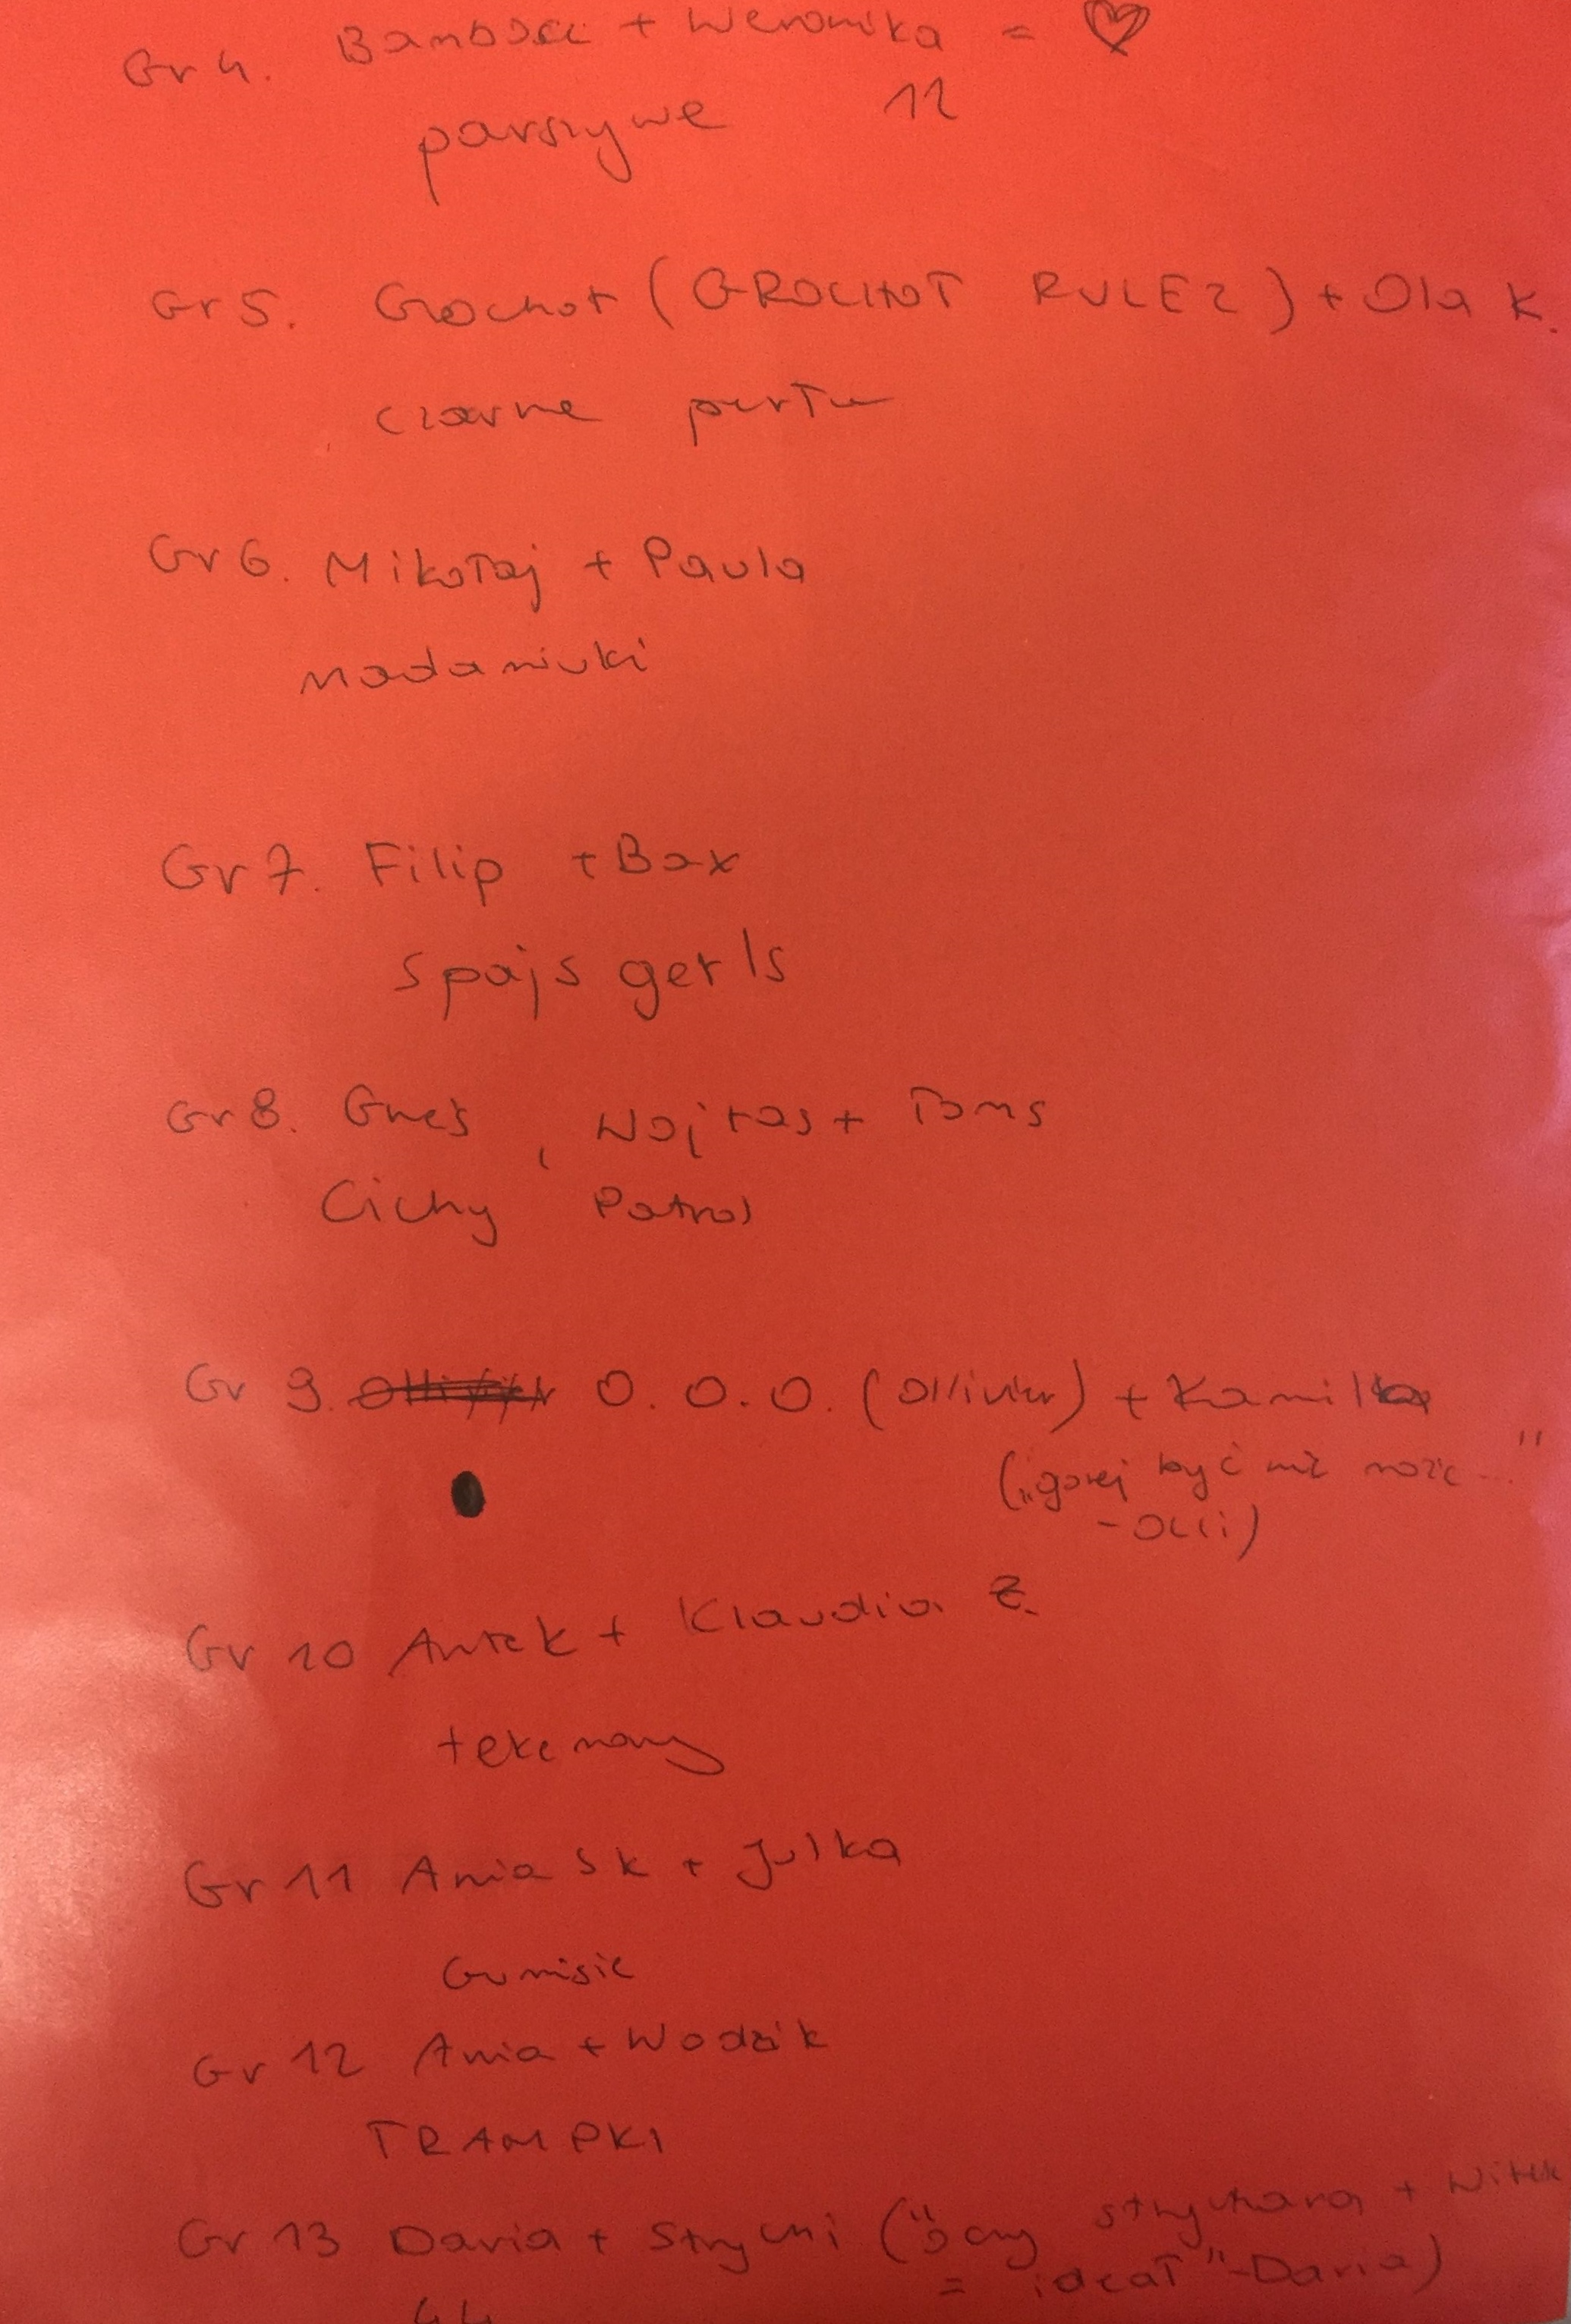 Gr 4. Bambosz + Weronika =
parszywe 12
Gr 5. Grochot (GROCHOT RULEZ) + Ola K.
czarne
Gr 6. Mikołaj + Paula
Gr 7. Filip + Bax
spajs gerls
Gr 8. Wojtas + Toms
Cichy Patrol
Gr 9. O.O.O. (Ollivier) + Kamil
("gorzej być nie może..."
- Olli)
Gr 10 Antek + Klaudia Z.
Gr 11 Ania Sk + Julka
Gumisie
Gr 12 Ania + Wodzik
TRAMPKI
Gr 13 Daria + Strychi ("oczy strychara + Witek
= ideał" - Daria)
44